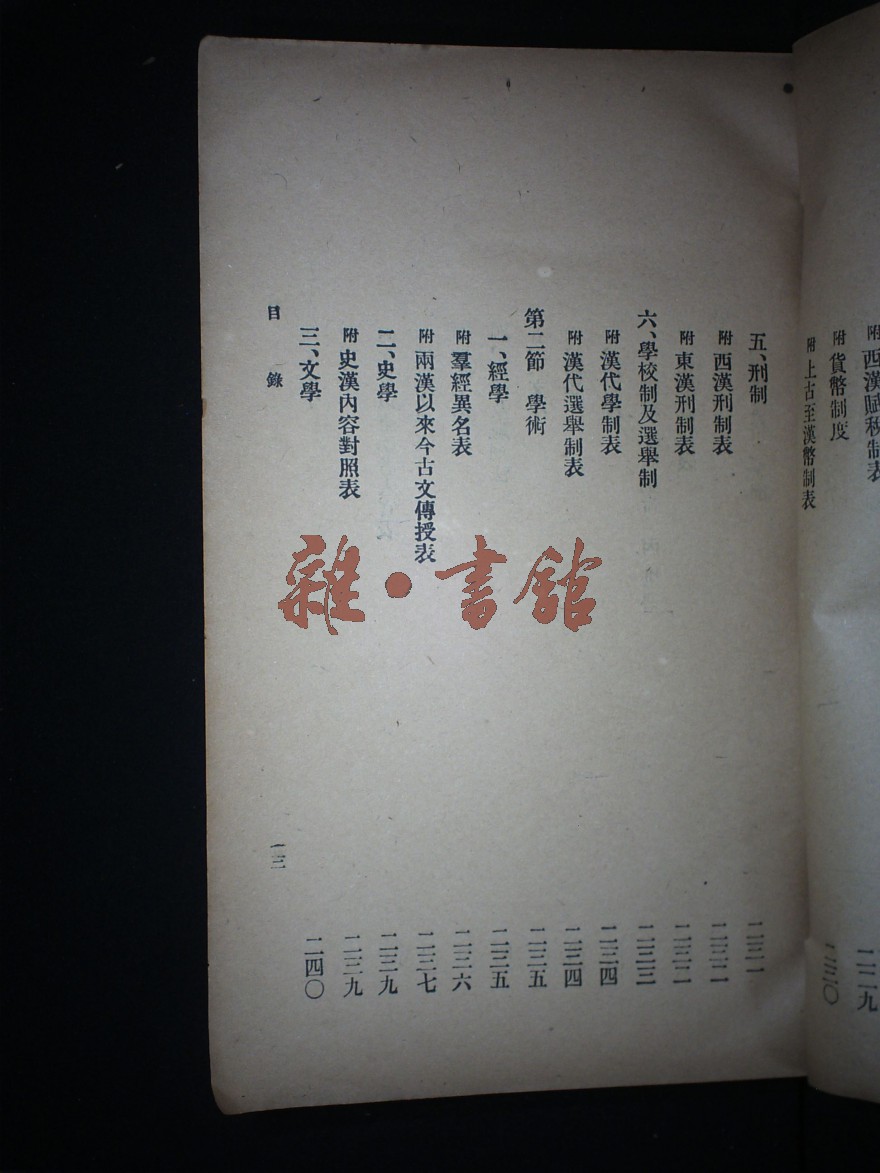 附 西漢賦稅制表 二二九
附 貨幣制度 二三〇
附 上古至漢幣制表
五、刑制 二三一
附 西漢刑制表 二三二
附 東漢刑制表 二三二
六、學校制及選舉制 二三三
附 漢代學制表 二三四
附 漢代選舉制表 二三四
第二節 學術 二三五
一、經學 二三五
附 羣經異名表 二三六
附 兩漢以來今古文傳授表 二三七
二、史學 二三九
附 史漢內容對照表 二三九
三、文學 二四〇
目錄 一三
雜·書館